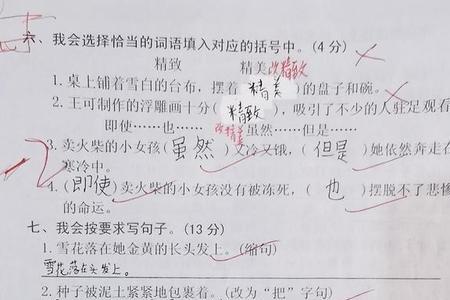 六、我会选择恰当的词语填入对应的括号中。(4分)
精致 精美 改精致
1. 桌上铺着雪白的台布，摆着(精美)的盘子和碗。
2. 王可制作的浮雕画十分(精致)，吸引了不少的人驻足观看
即使……也…… 改精美 虽然……但是……
3. 卖火柴的小女孩(虽然)又冷又饿，(但是)她依然奔走在
寒冷中。
4. (即使)卖火柴的小女孩没有被冻死，(也)摆脱不了悲惨
的命运。
七、我会按要求写句子。(13分)
1. 雪花落在她金黄的长头发上。(缩句)
雪花落在头发上。
2. 种子被泥土紧紧地包裹着。(改为“把”字句)